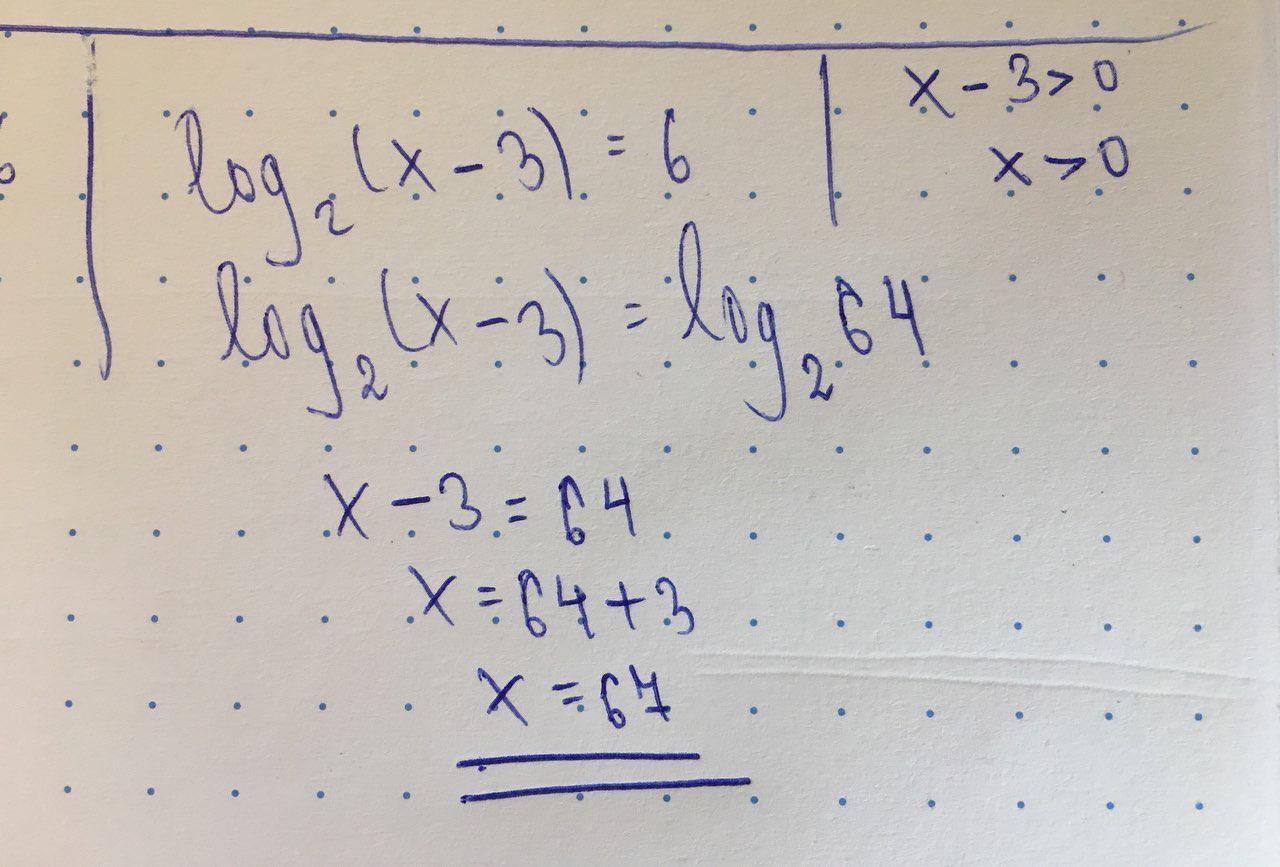 log₂(x-3) = 6
x-3>0
x>0
log₂(x-3) = log₂64
x-3=64
x=64+3
x=67